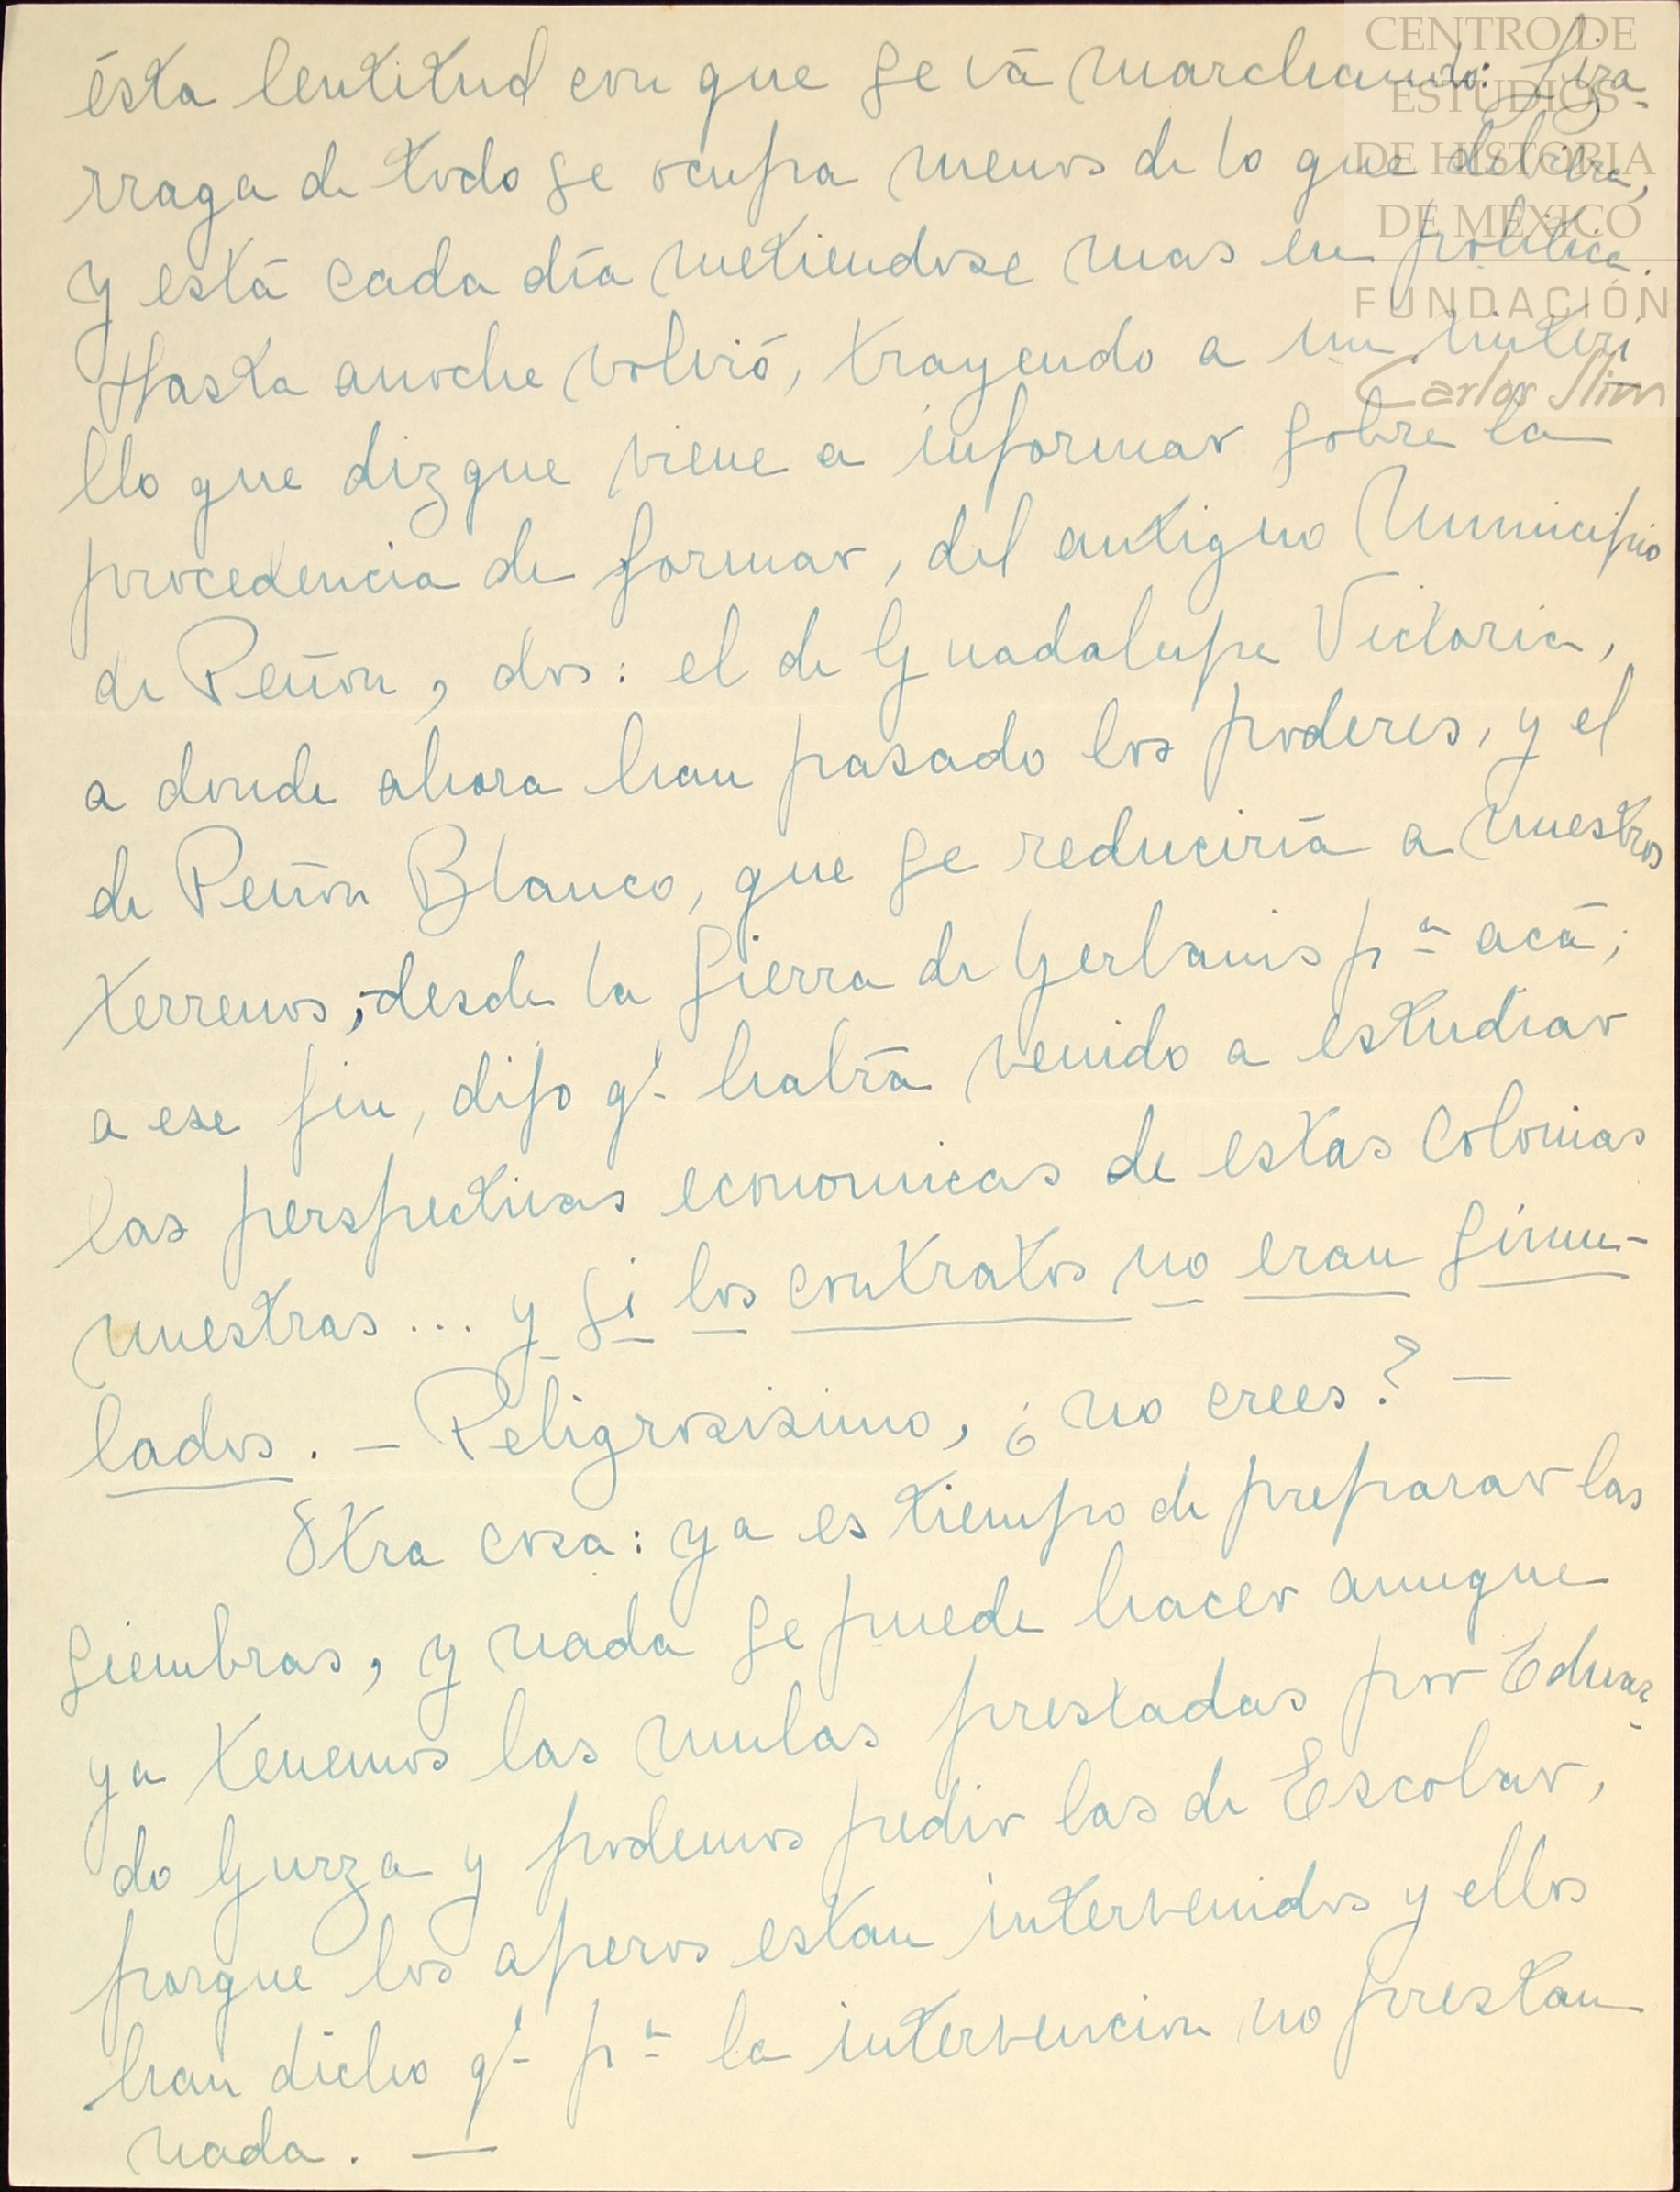 CENTRO DE
ESTUDIOS
DE HISTORIA
DE MEXICO
FUNDACIÓN
Carlos Slim
ésta lentitud con que se vá marchando: Liza-
rraga de todo se ocupa menos de lo que debiera,
y está cada día metiendose mas en politica.
Hasta anoche volvió, trayendo a un tinteri-
llo que dizque viene a informar sobre la
procedencia de formar, del antiguo Municipio
de Peñon, dos: el de Guadalupe Victoria,
a donde ahora han pasado los poderes, y el
de Peñon Blanco, que se reduciría a nuestros
terrenos, desde la Sierra de Yerbanis pª acá;
a ese fin, dijo q'- habrá venido a estudiar
las perspectivas economicas de estas Colonias
nuestras... y si los contratos no eran simu-
lados. - Peligrosisimo, ¿no crees? -
Otra cosa: ya es tiempo de preparar las
siembras, y nada se puede hacer aunque
ya tenemos las mulas prestadas por Eduar-
do Gurza y podemos pedir las de Escobar,
porque los aperos estan intervenidos y ellos
han dicho q'- pª la intervencion no prestan
nada. -